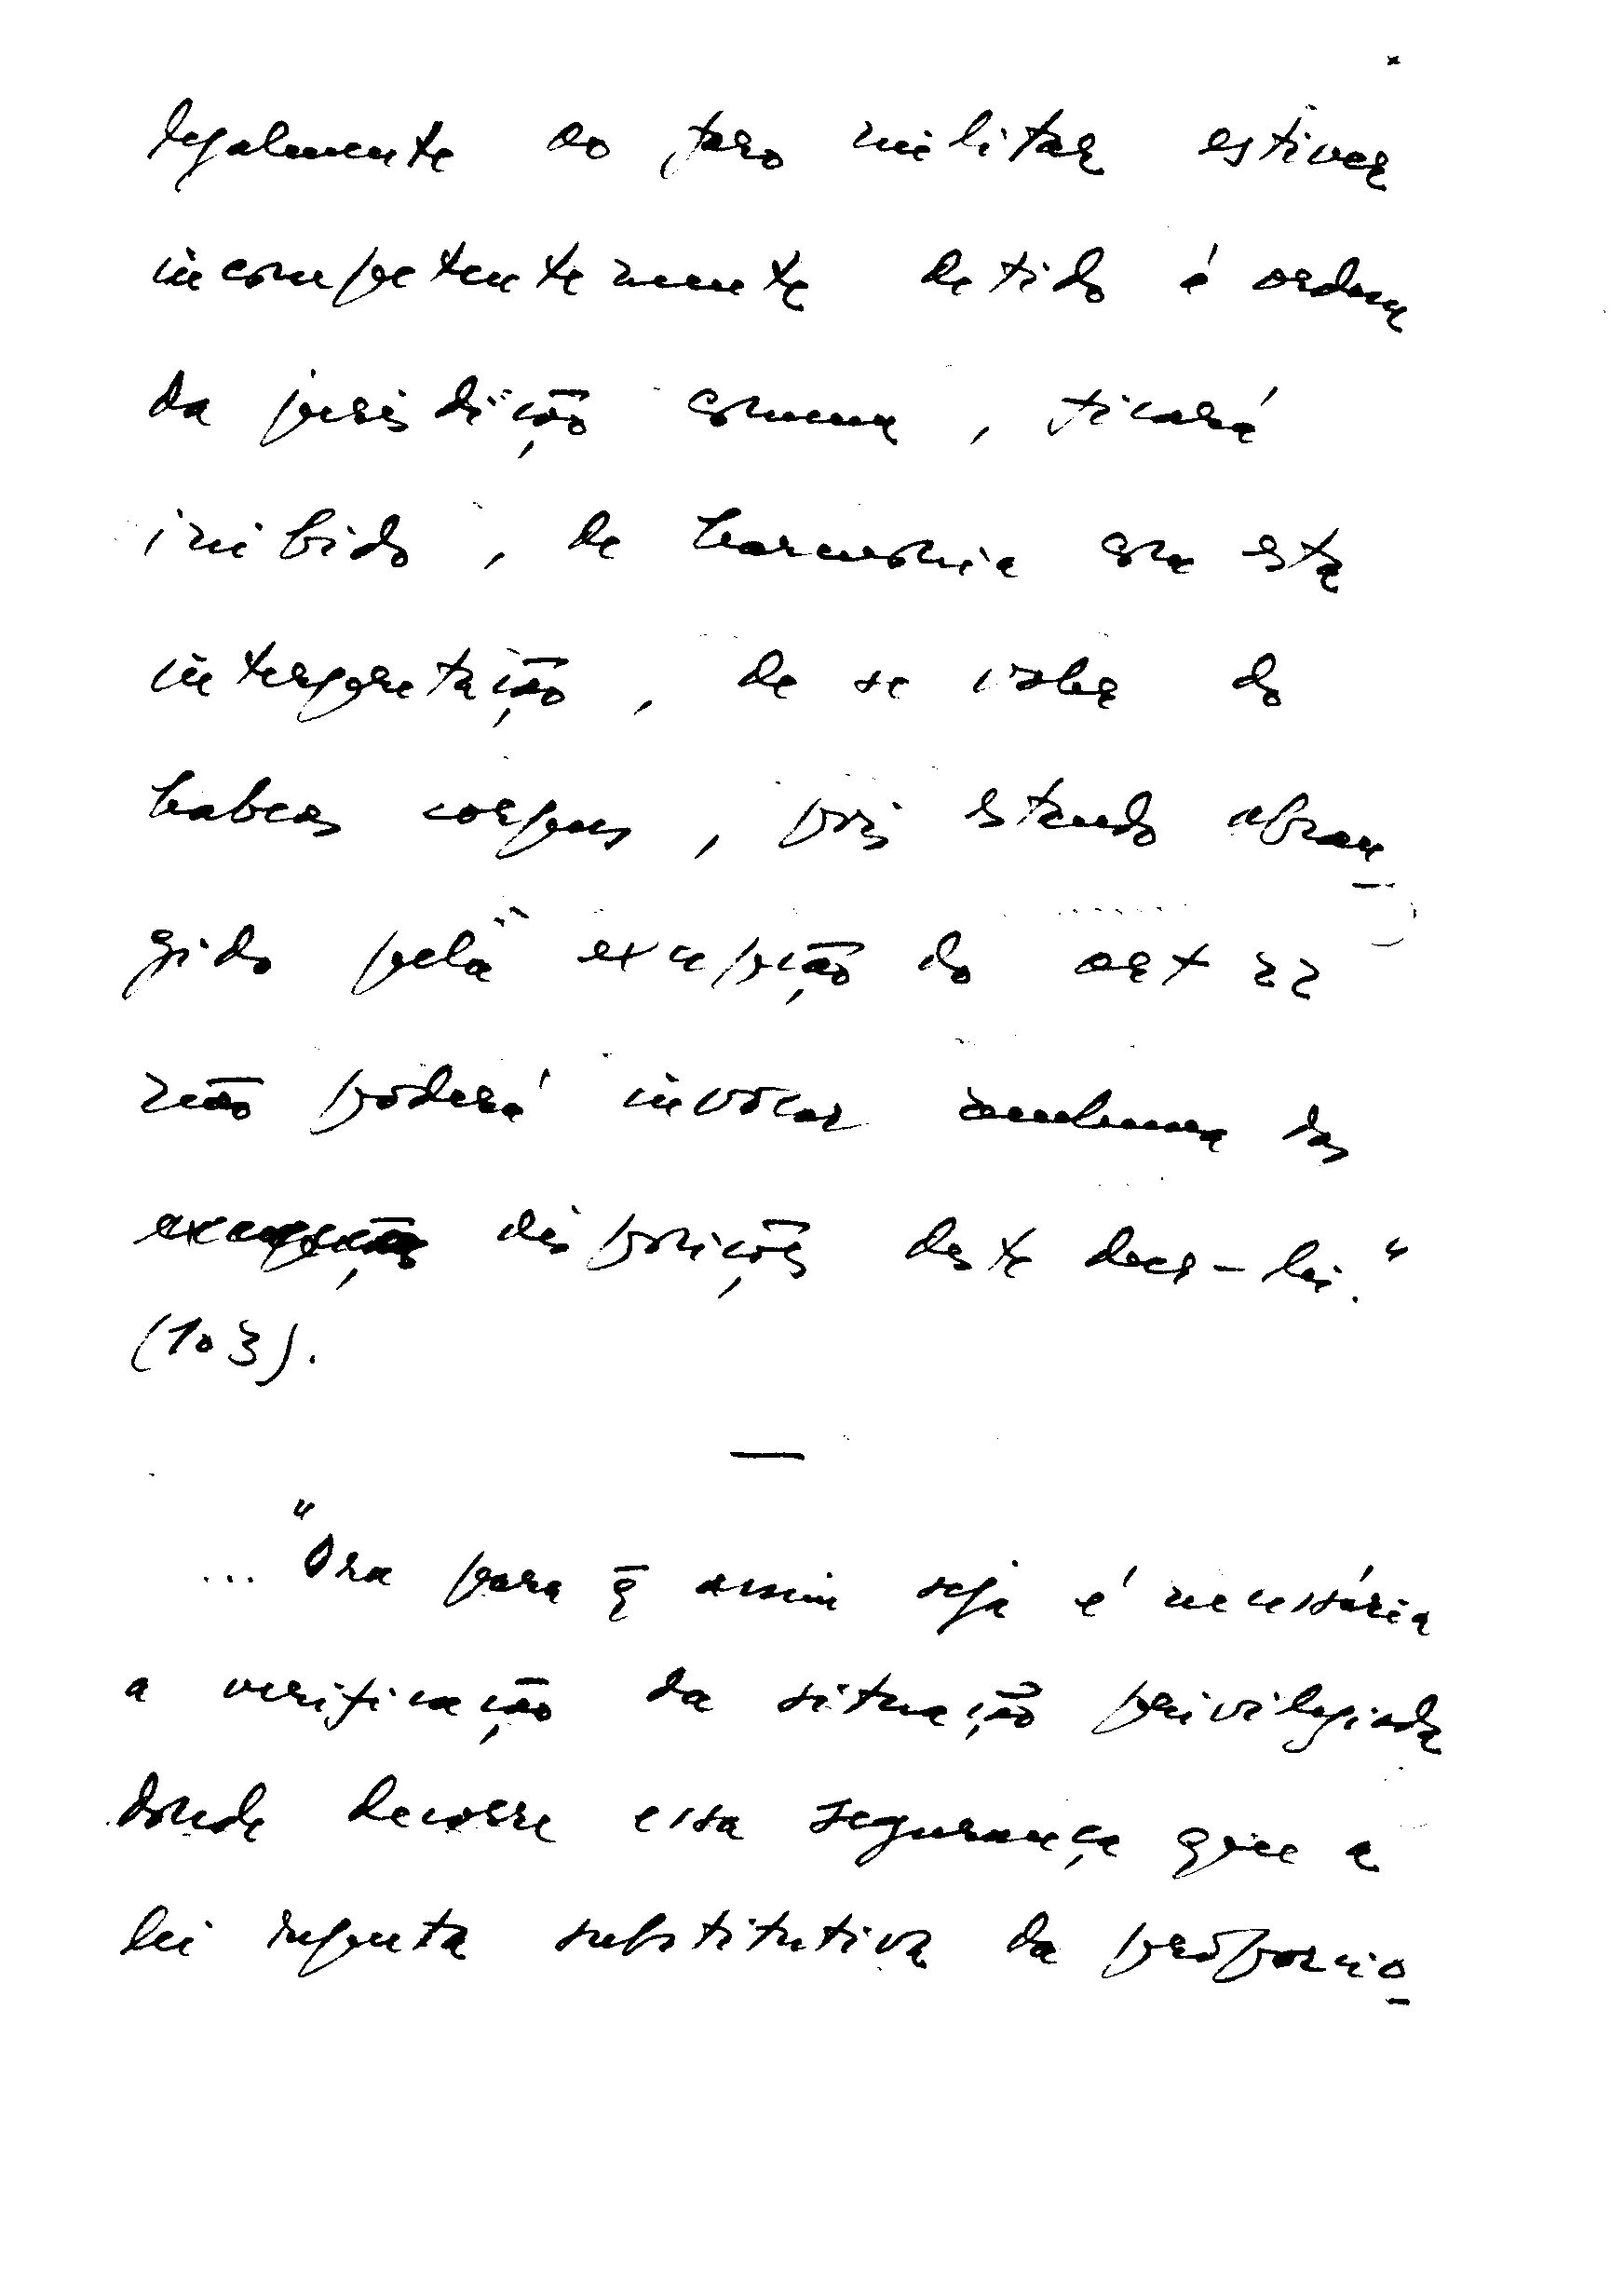 legalmente ao foro militar estiver
incompetentemente detido á ordem
da jurisdição comum, ficará
inibido, de harmonia com esta
interpretação, de se valer do
habeas corpus, pois estando abran
gido pela excepção do art 22
não poderá invocar nenhuma das
disposições deste decr-lei."
(103).
—
... "Ora para q̄ assim seja é necessária
a verificação da situação privilegiada
donde decorre essa segurança que a
lei reputa substitutiva da proporcio